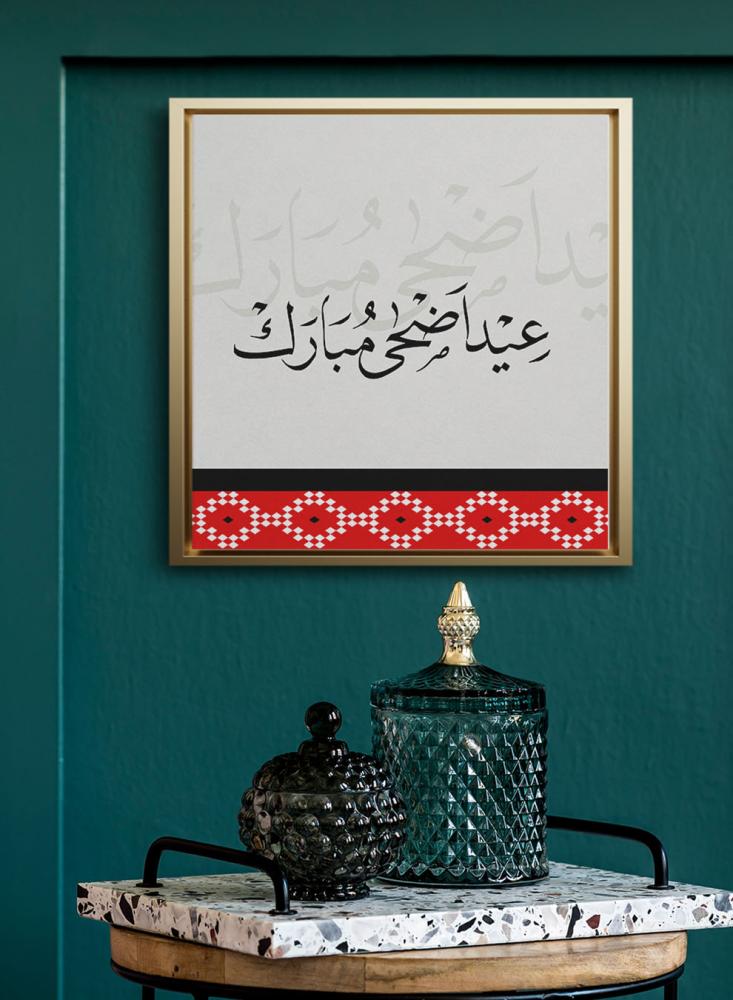 عِيْد اَضْحٰى مُبَارَك
عِيْد اَضْحٰى مُبَارَك